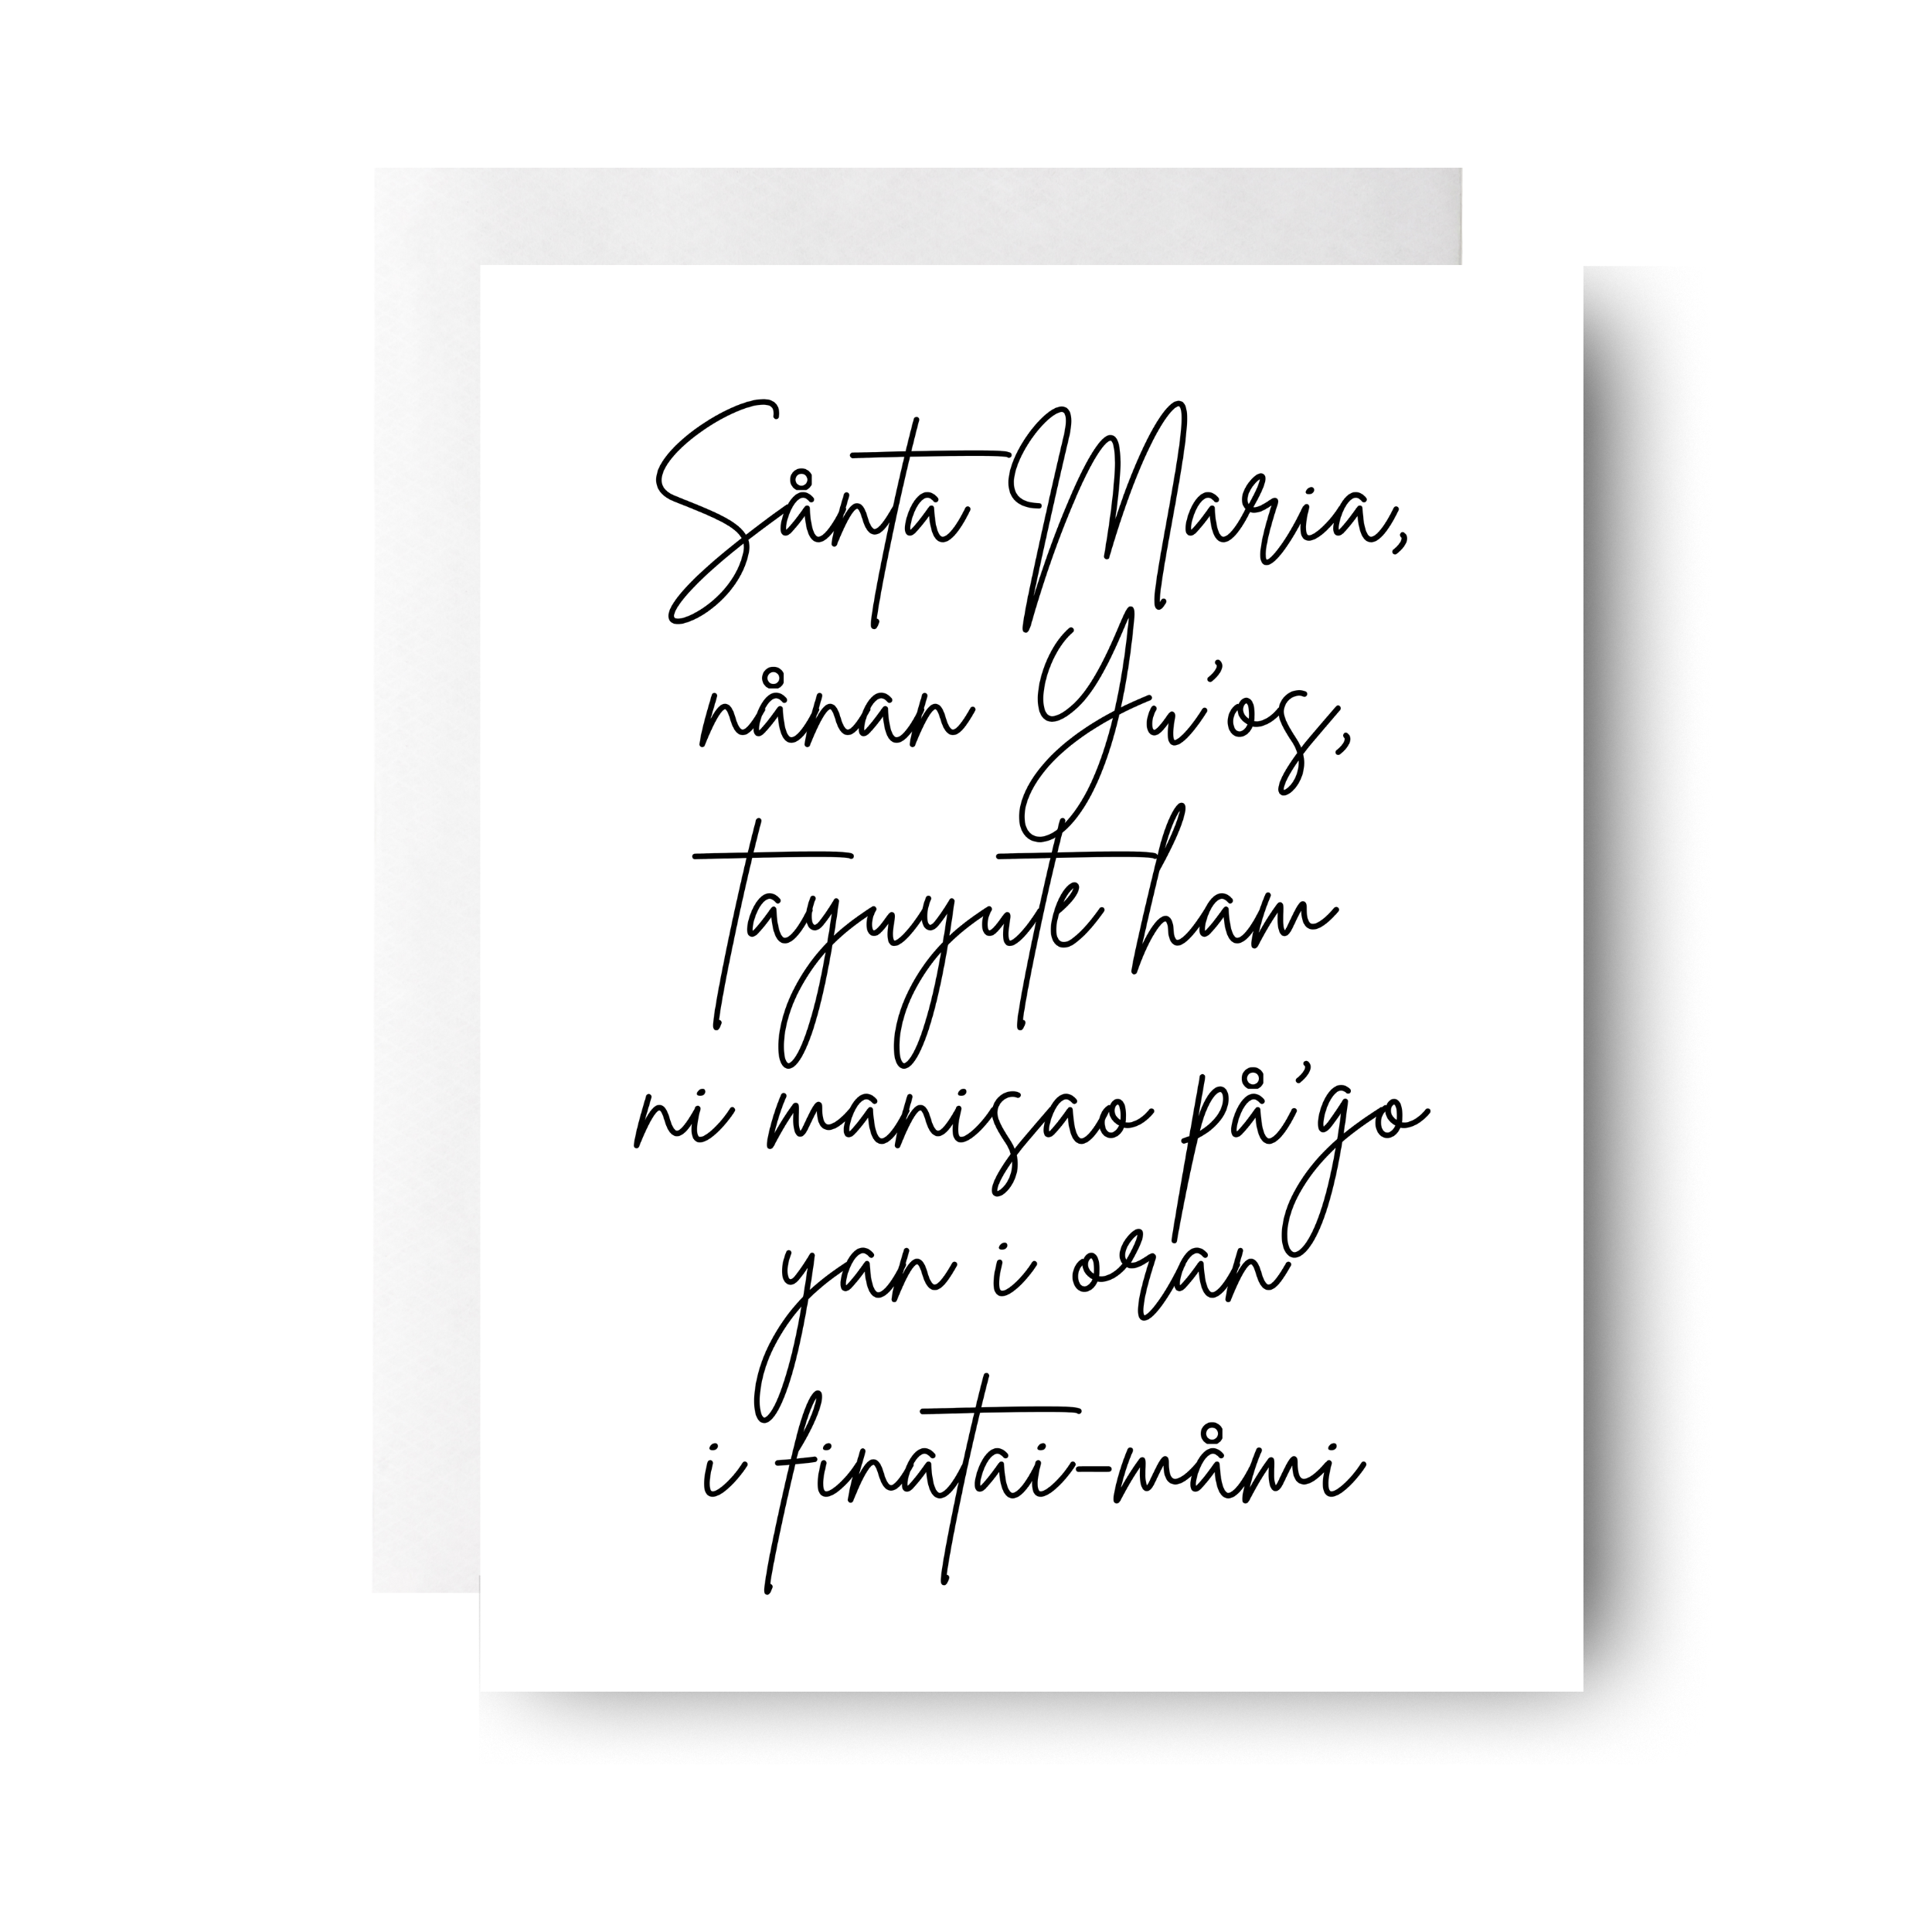 Sånta Maria,
nånan Yu'os,
tayuyute ham
ni manisao på'go
yan i oran
i finatai-måmi